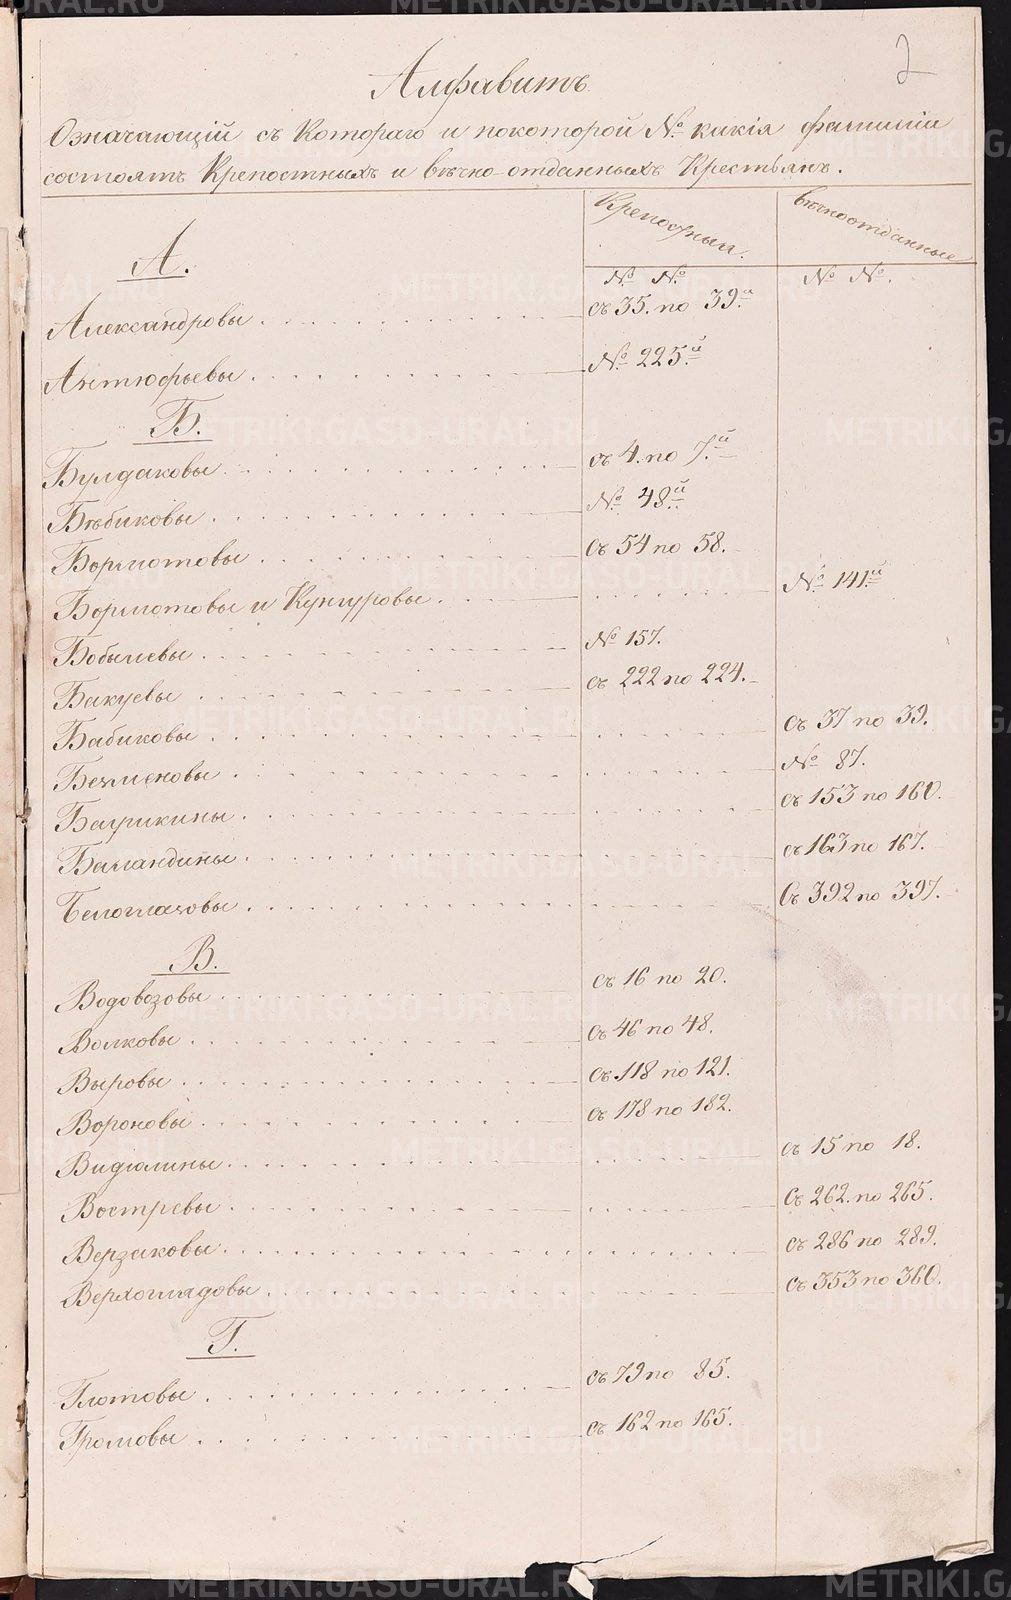 2
Алфавитъ
Означающій съ Котораго и покоторой № какія фамиліи
состоятъ Крепостныхъ и вѣчно-отданныхъ Крестьянъ.
Крепостныя. вѣчноотданные
А.
№ №. № №.
Александровы съ 35. по 39.й
Антюфьевы № 225.й
Б.
Булдаковы съ 4. по 7.й
Бѣбиковы № 48.й
Бормотовы съ 54 по 58.
Бормотовы и Кунгуровы № 141.й
Бобылевы № 157.
Бакуевы съ 222 по 224.
Бабиковы съ 37 по 39.
Безменовы № 87.
Баурикины съ 153 по 160.
Баландины съ 163 по 167.
Белоглазовы съ 392 по 397.
В.
Водовозовы съ 16 по 20.
Волковы съ 46 по 48.
Выровы съ 118 по 121.
Вороновы съ 178 по 182.
Видюлины съ 15 по 18.
Востревы съ 262. по 265.
Верзаковы съ 286 по 289.
Верхогладовы съ 353 по 360.
Г.
Глотовы съ 79 по 85.
Громовы съ 162 по 165.
METRIKI.GASO-URAL.RU